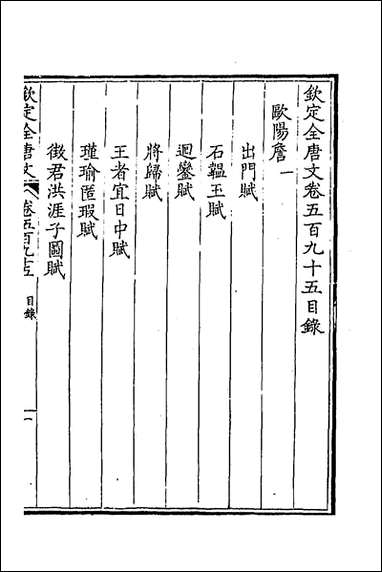 欽定全唐文卷五百九十五目錄
歐陽詹一
出門賦
石韞玉賦
迴鑾賦
將歸賦
王者宜日中賦
瑾瑜匿瑕賦
徵君洪涯子圖賦
欽定全唐文
卷五百九十五
目錄
一